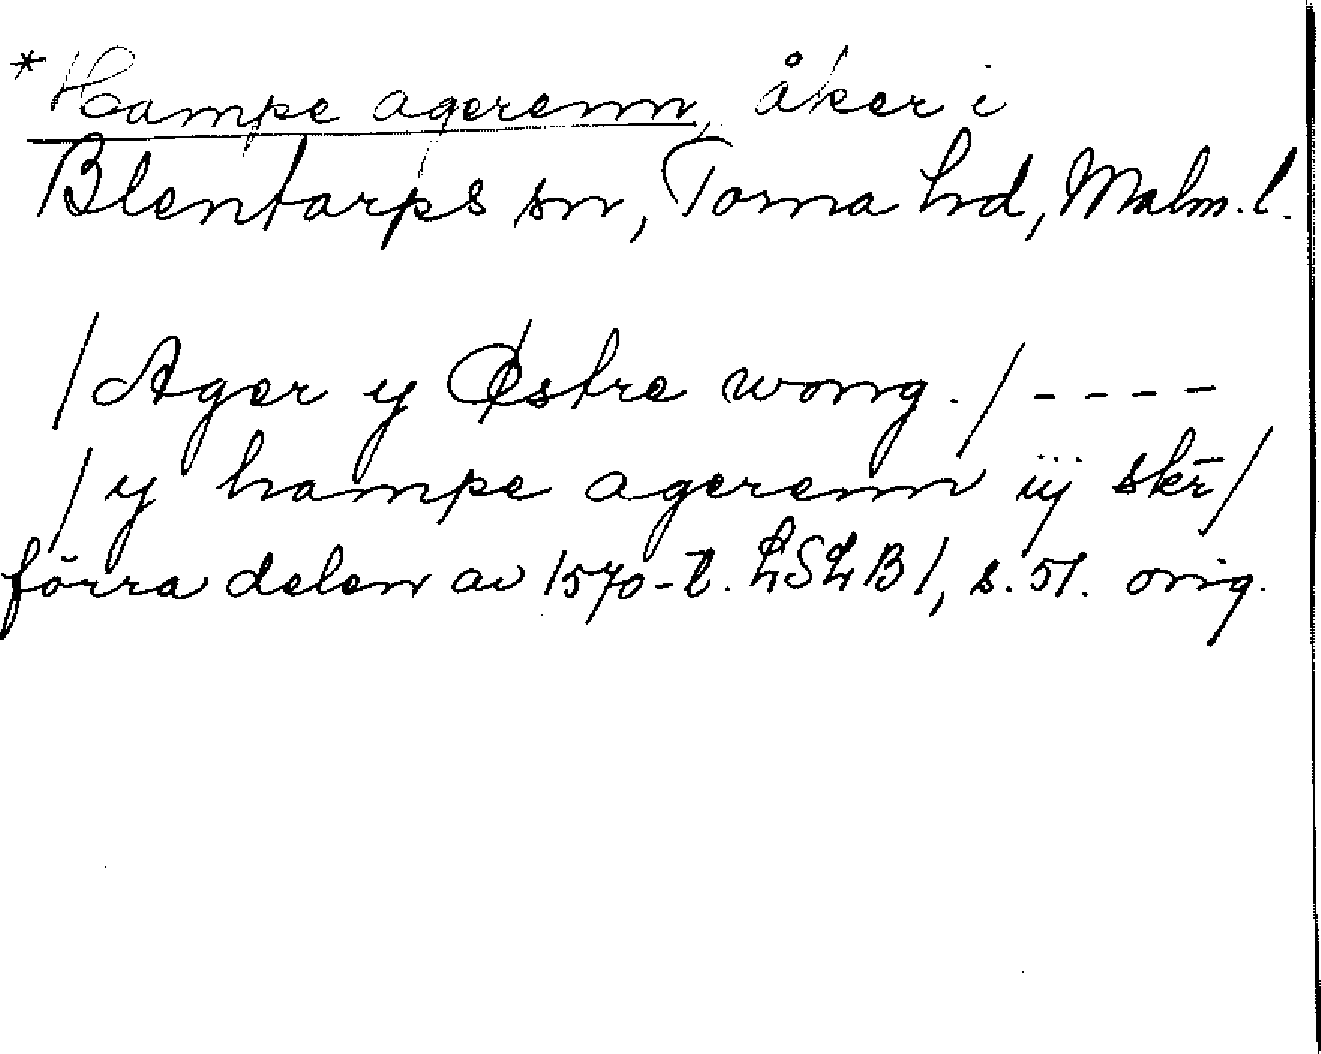 *Hampe agerenn, åker i
Blentarps sn, Torna hd, Malm. l.
/Ager y Østre wong./ - - - -
/y hampe agerenn iij skr̄/
förra delen av 1570-t. LSLB 1, s. 51. orig.